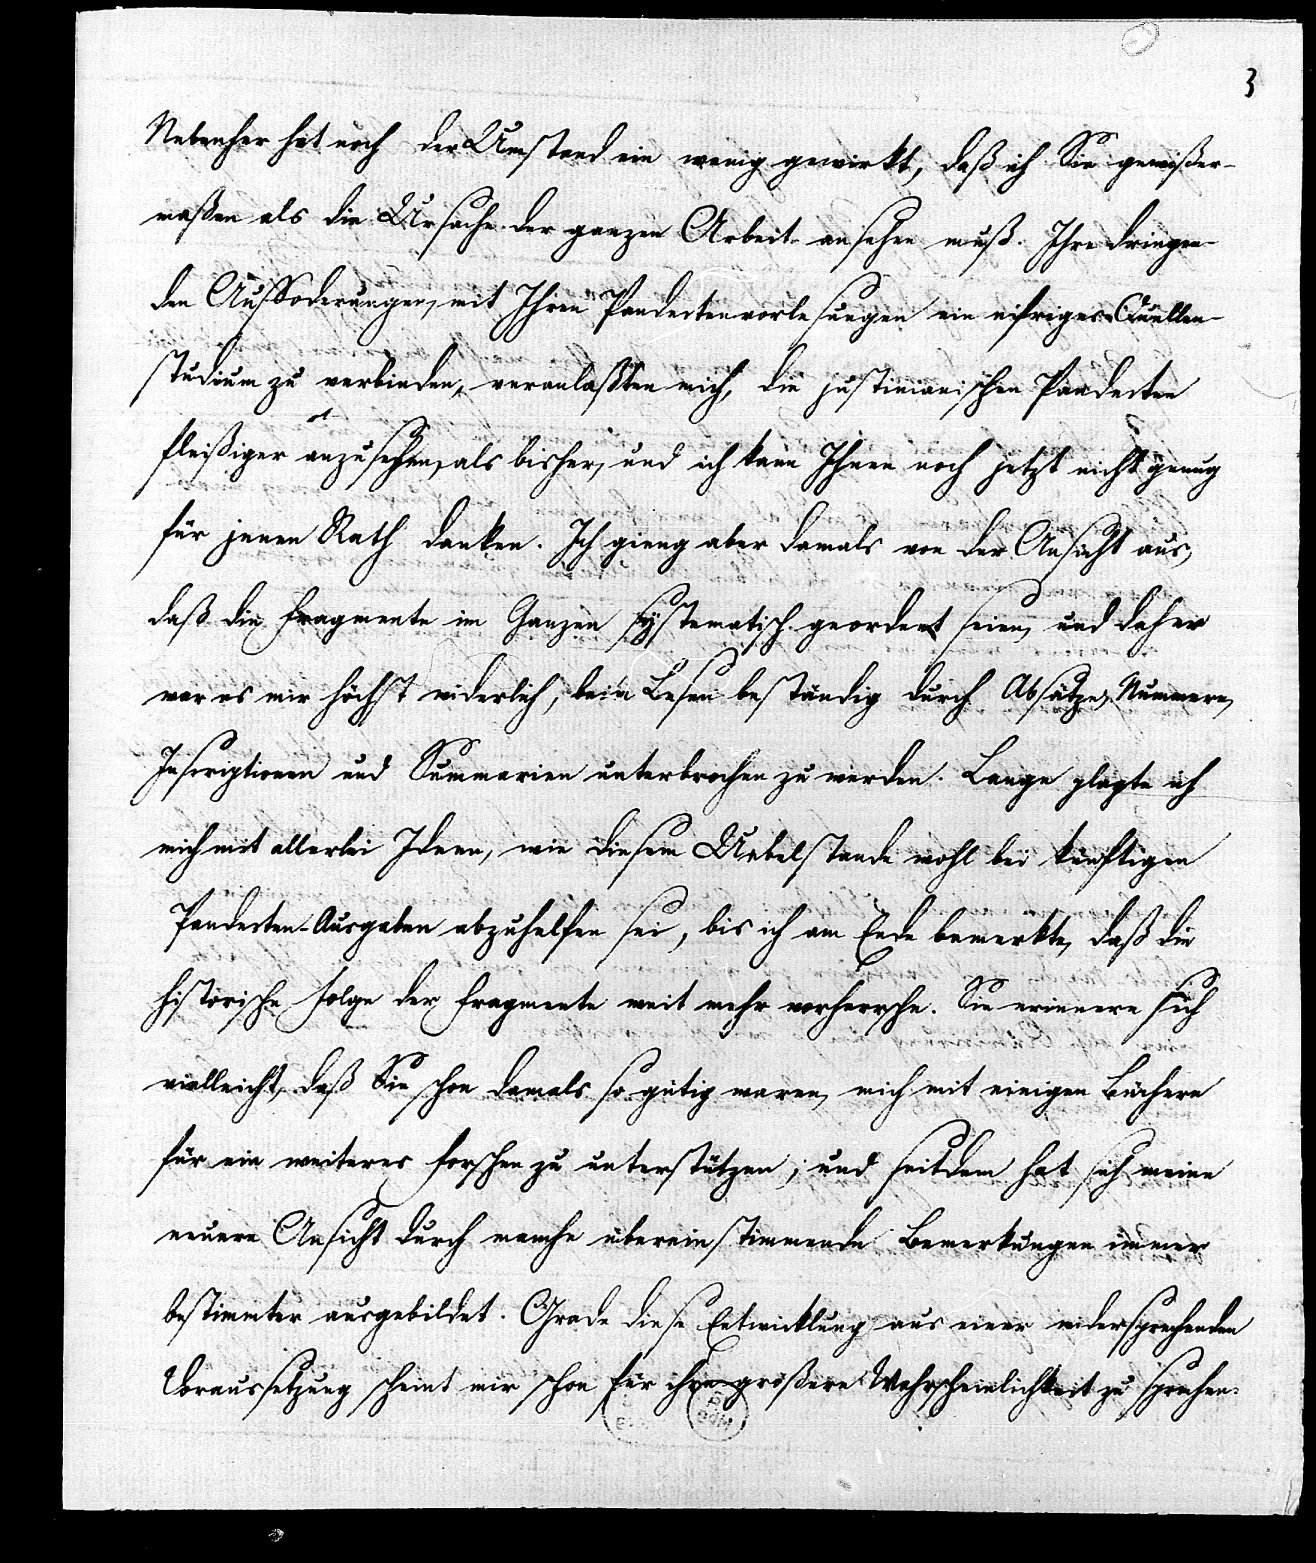 3
Nebenher hat noch der Umstand ein wenig gewirkt, daß ich Sie gewißer-
maßen als die Ursache der ganzen Arbeit ansehen muß. Ihre dringen-
den Auffoderungen, mit Ihren Pandectenvorlesungen ein eifriges Quellen-
studium zu verbinden, veranlaßten mich, die justinianischen Pandecten
fleißiger anzusehen, als bisher, und ich kann Ihnen noch jetzt nicht genug
für jenen Rath danken. Ich gieng aber damals von der Ansicht aus,
daß die Fragmente im Ganzen systematisch geordnet seien, und daher
war es mir höchst widerlich, beim Lesen beständig durch Absätze, Nummern,
Inscriptionen und Summarien unterbrochen zu werden. Lange plagte ich
mich mit allerlei Ideen, wie diesem Uebelstande wohl bei künftigen
Pandecten-Ausgaben abzuhelfen sei, bis ich am Ende bemerkte, daß die
historische Folge der Fragmente weit mehr vorherrsche. Sie erinnern sich
vielleicht, daß Sie schon damals so gütig waren, mich mit einigen Büchern
für ein weiteres Forschen zu unterstützen; und seitdem hat sich meine
neuere Ansicht durch manche übereinstimmende Bemerkungen immer
bestimmter ausgebildet. Grade diese Entwicklung aus einer widersprechenden
Voraussetzung scheint mir schon für ihre größere Wahrscheinlichkeit zu sprechen.